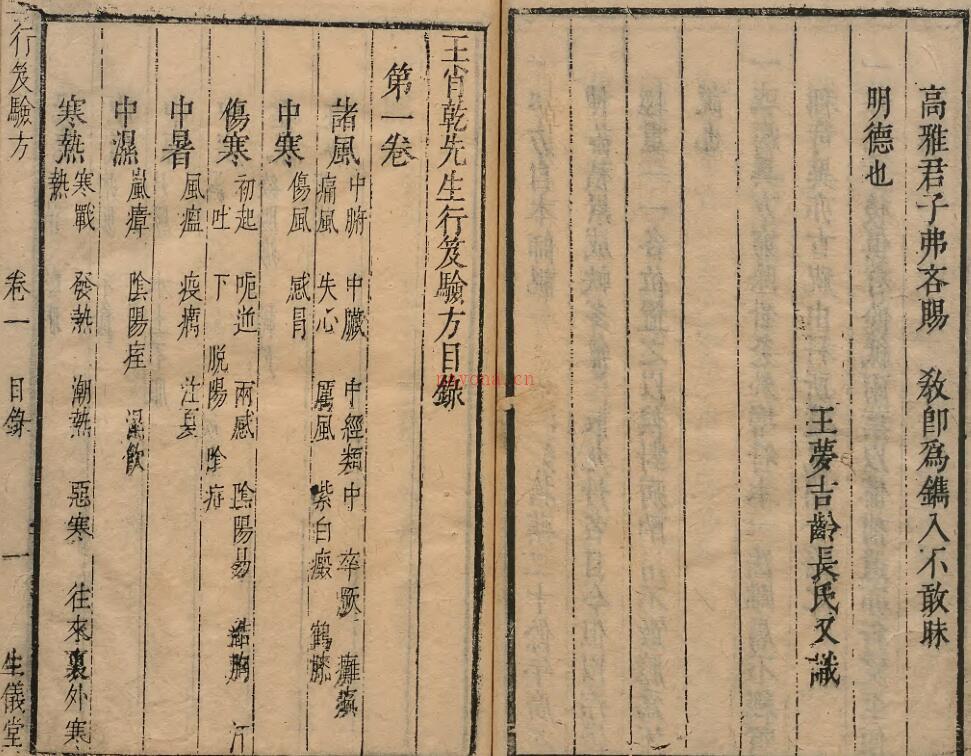 高雅君子弗吝賜　教卽爲鐫入不敢昧
明德也
王夢吉齡長氏又識
王肯乾先生行笈驗方目錄
第一卷
諸風　中腑　中臟　中經類中　卒厥　癱瘓
痛風　失心　厲風　紫白癜　鶴膝
中寒　傷風　感冒
傷寒　初起　呃逆　兩感　陰陽易　結胸　汗
吐　下　脫陽　陰症
中暑　風瘟　疫癘　注夏
中濕　嵐瘴　陰陽痓　溪飲
寒熱　寒戰　發熱　潮熱　惡寒　往來裏外寒
熱
行笈驗方　卷一　目錄　一　生儀堂